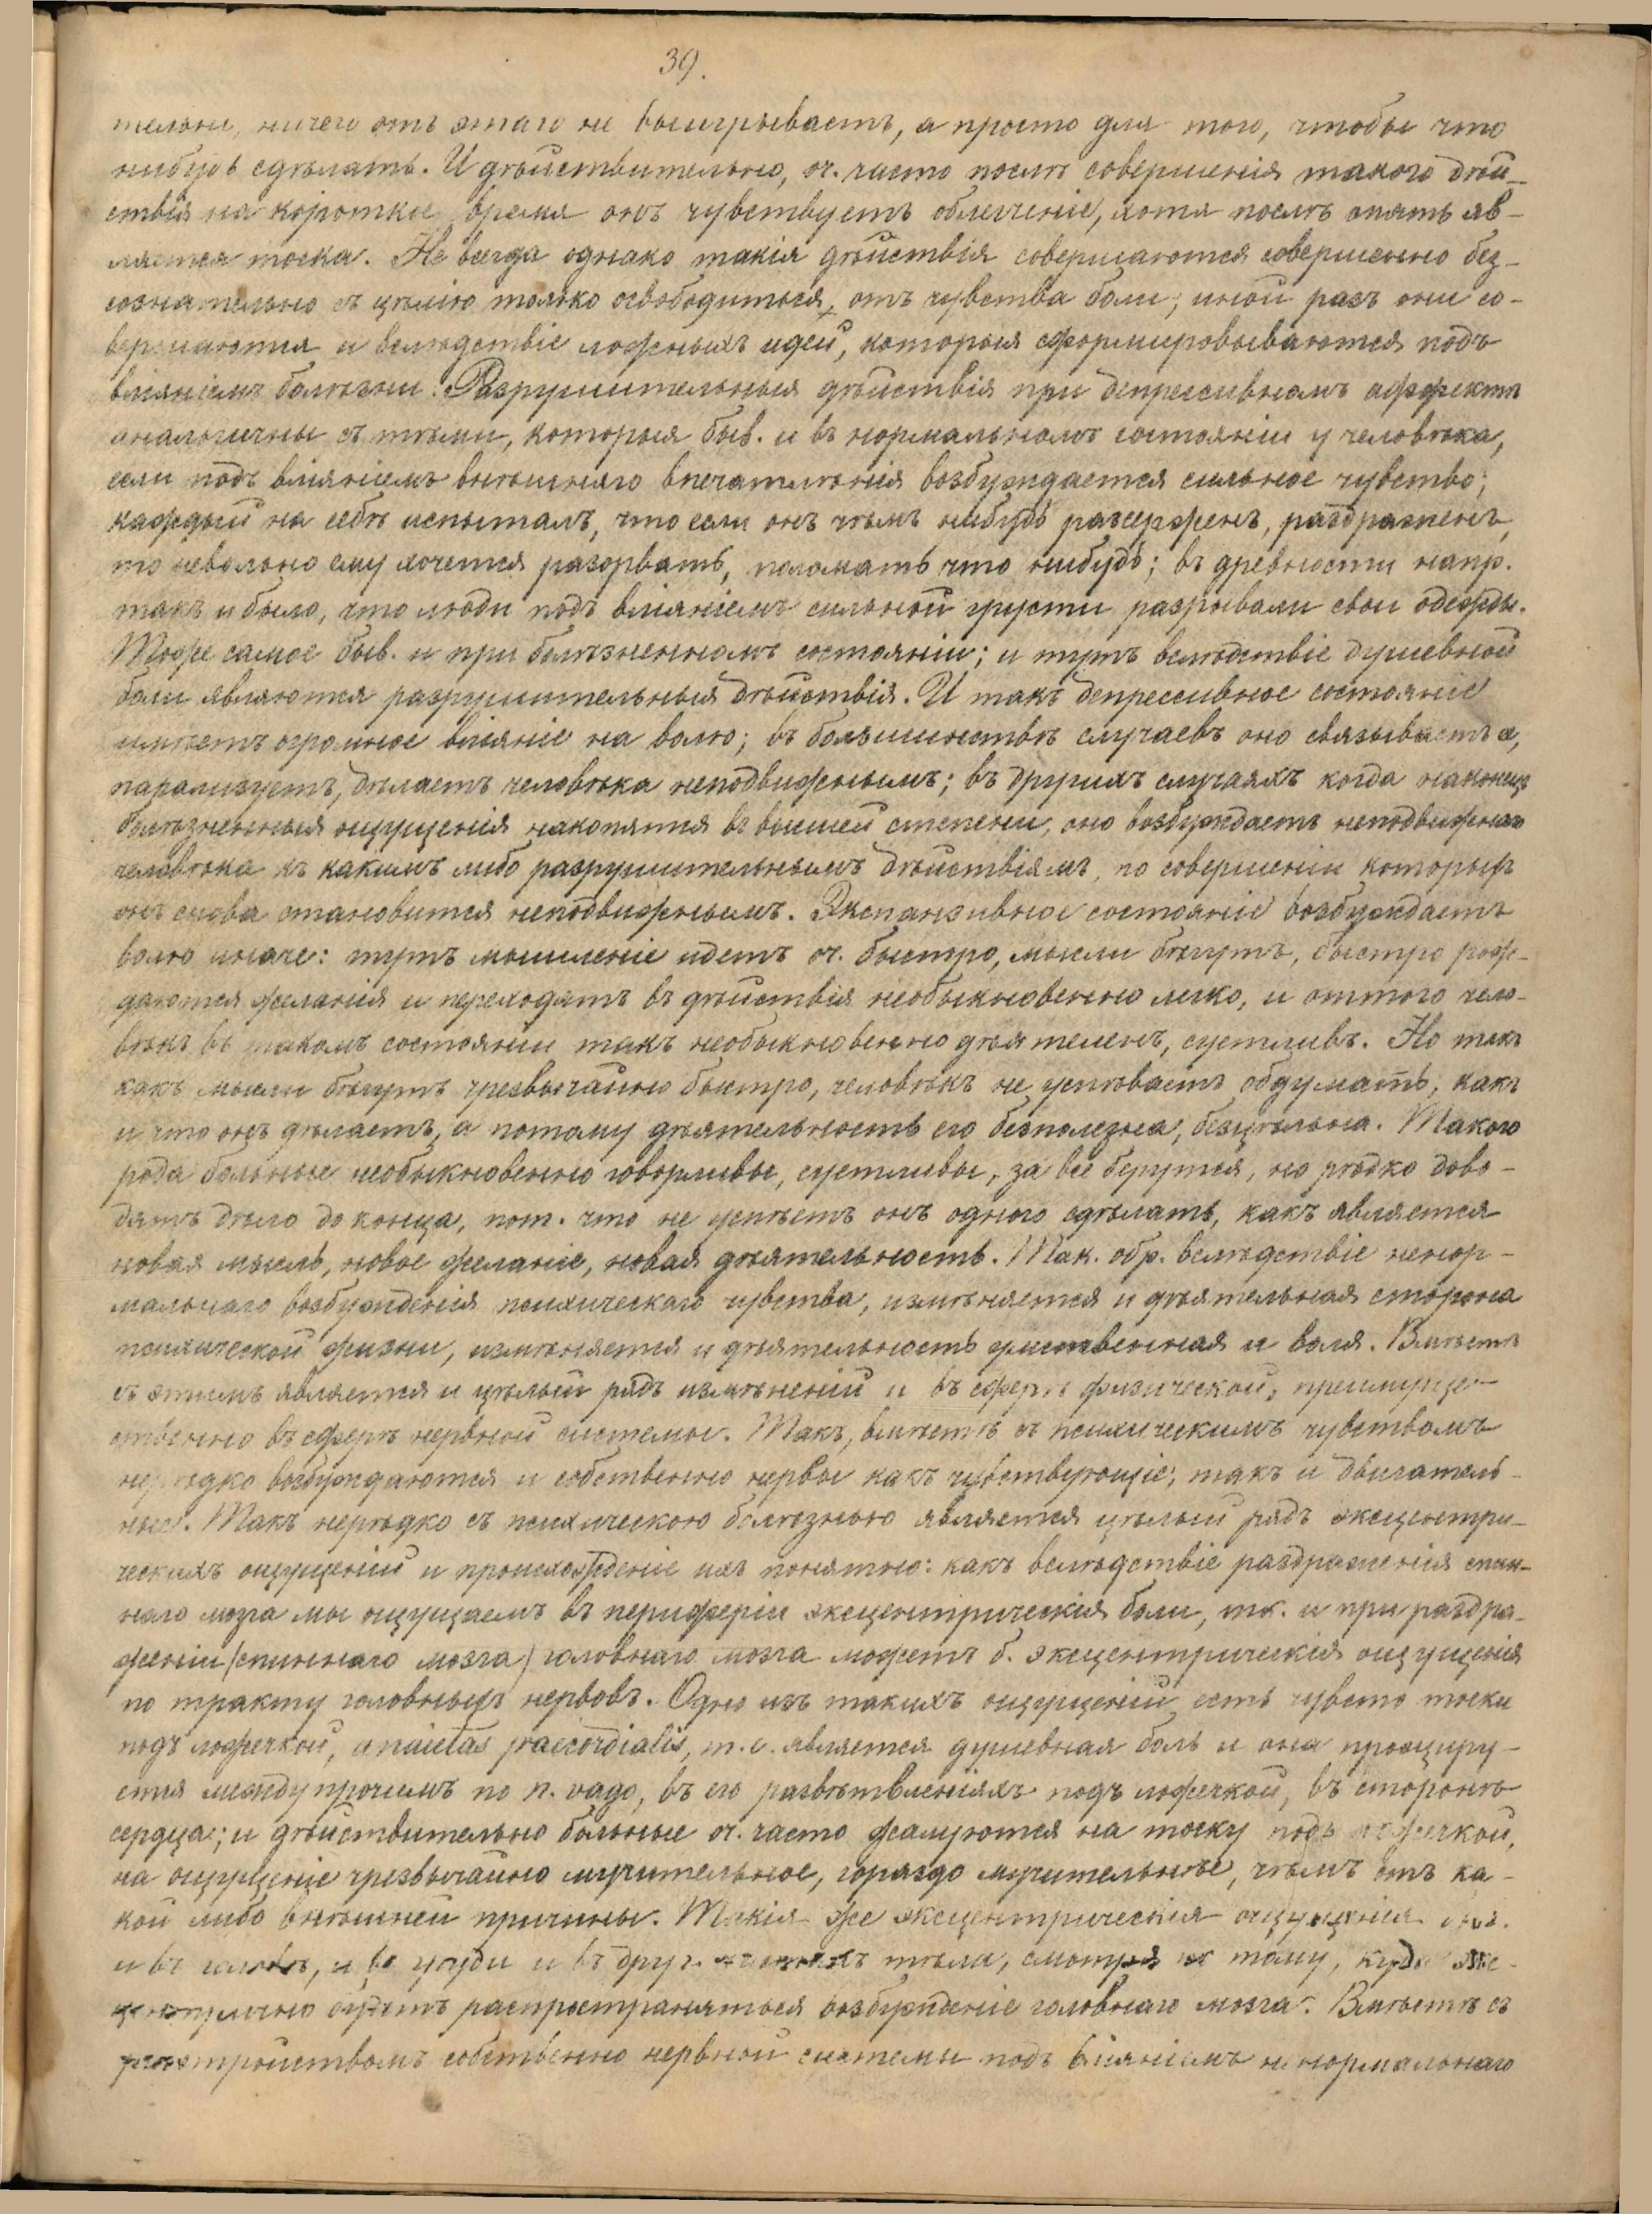 39.
тельно, ничего отъ этаго не выигрываетъ, а просто для того, чтобы что
нибудь сдѣлать. И дѣйствительно, оч. часто послѣ совершенія такого дѣй-
ствія на короткое время онъ чувствуетъ облегченіе, хотя послѣ опять яв-
ляется тоска. Не всегда однако такія дѣйствія совершаются совершенно без-
сознательно съ цѣлію только освободиться, отъ чувства боли; иной разъ они со-
вершаются и вслѣдствіе ложныхъ идей, которыя сформировываются подъ
вліяніемъ болѣзни. Разрушительныя дѣйствія при депрессивномъ аффектѣ
аналогичны съ тѣми, которыя быв. и въ нормальномъ состояніи у человѣка,
если подъ вліяніемъ внѣшняго впечатлѣнія возбуждается сильное чувство;
каждый на себѣ испыталъ, что если онъ чѣмъ нибудь разсерженъ, раздраженъ,
то невольно ему хочется разорвать, поломать что нибудь; въ древности напр.
такъ и было, что люди подъ вліяніемъ сильной грусти разрывали свои одежды.
Тоже самое быв. и при болѣзненномъ состояніи; и тутъ вслѣдствіе душевной
боли являются разрушительныя дѣйствія. И такъ депрессивное состояніе
имѣетъ огромное вліяніе на волю; въ большинствѣ случаевъ оно связываетъ ее,
парализуетъ, дѣлаетъ человѣка неподвижнымъ; въ другихъ случаяхъ когда наконецъ
болѣзненныя ощущенія накопятся въ высшей степени, оно возбуждаетъ неподвижнаго
человѣка къ какимъ либо разрушительнымъ дѣйствіямъ, по совершеніи которыхъ
онъ снова становится неподвижнымъ. Экспансивное состояніе возбуждаетъ
волю иначе: тутъ мышленіе идетъ оч. быстро, мысли бѣгутъ, быстро рож-
даются желанія и переходятъ въ дѣйствія необыкновенно легко, и оттого чело-
вѣкъ въ такомъ состояніи такъ необыкновенно дѣятеленъ, суетливъ. Но такъ
какъ мысли бѣгутъ чрезвычайно быстро, человѣкъ не успѣваетъ обдумать, какъ
и что онъ дѣлаетъ, а потому дѣятельность его безполезна, безцѣльна. Такого
рода больные необыкновенно говорливы, суетливы, за все берутся, но рѣдко дово-
дятъ дѣло до конца, пот. что не успѣетъ онъ одного сдѣлать, какъ является
новая мысль, новое желаніе, новая дѣятельность. Так. обр. вслѣдствіе ненор-
мальнаго возбужденія психическаго чувства, измѣняется и дѣятельная сторона
психической жизни, измѣняется и дѣятельность умственная и воля. Вмѣстѣ
съ этимъ является и цѣлый рядъ измѣненій и въ сферѣ физической, преимуще-
ственно въ сферѣ нервной системы. Такъ, вмѣстѣ съ психическимъ чувствомъ
нерѣдко возбуждаются и собственно нервы какъ чувствующіе, такъ и двигатель-
ные. Такъ нерѣдко съ психическою болѣзнью является цѣлый рядъ эксцентри-
ческихъ ощущеній и происхожденіе ихъ понятно: какъ вслѣдствіе раздраженія спин-
наго мозга мы ощущаемъ въ периферіи эксцентрическія боли, тк. и при раздра-
женіи (спиннаго мозга) головнаго мозга можетъ б. эксцентрическія ощущенія
по тракту головныхъ нервовъ. Одно изъ такихъ ощущеній есть чувсто тоски
подъ ложечкой, anxietas praecordialis, т.е. является душевная боль и она проэциру-
ется между прочимъ по n. vago, въ его развѣтвленіяхъ подъ ложечкой, въ сторонѣ
сердца; и дѣйствительно больные оч. часто жалуются на тоску подъ ложечкой,
на ощущеніе чрезвычайно мучительное, гораздо мучительнѣе, чѣмъ отъ ка-
кой либо внѣшней причины. Такія же эксцентрическія ощущенія
и въ головѣ, и въ груди и въ друг. частяхъ тѣла, смотря по тому, куда экс-
центрично будетъ распространяться возбужденіе головнаго мозга. Вмѣстѣ съ
разстройствомъ собственно нервной системы подъ вліяніемъ ненормальнаго